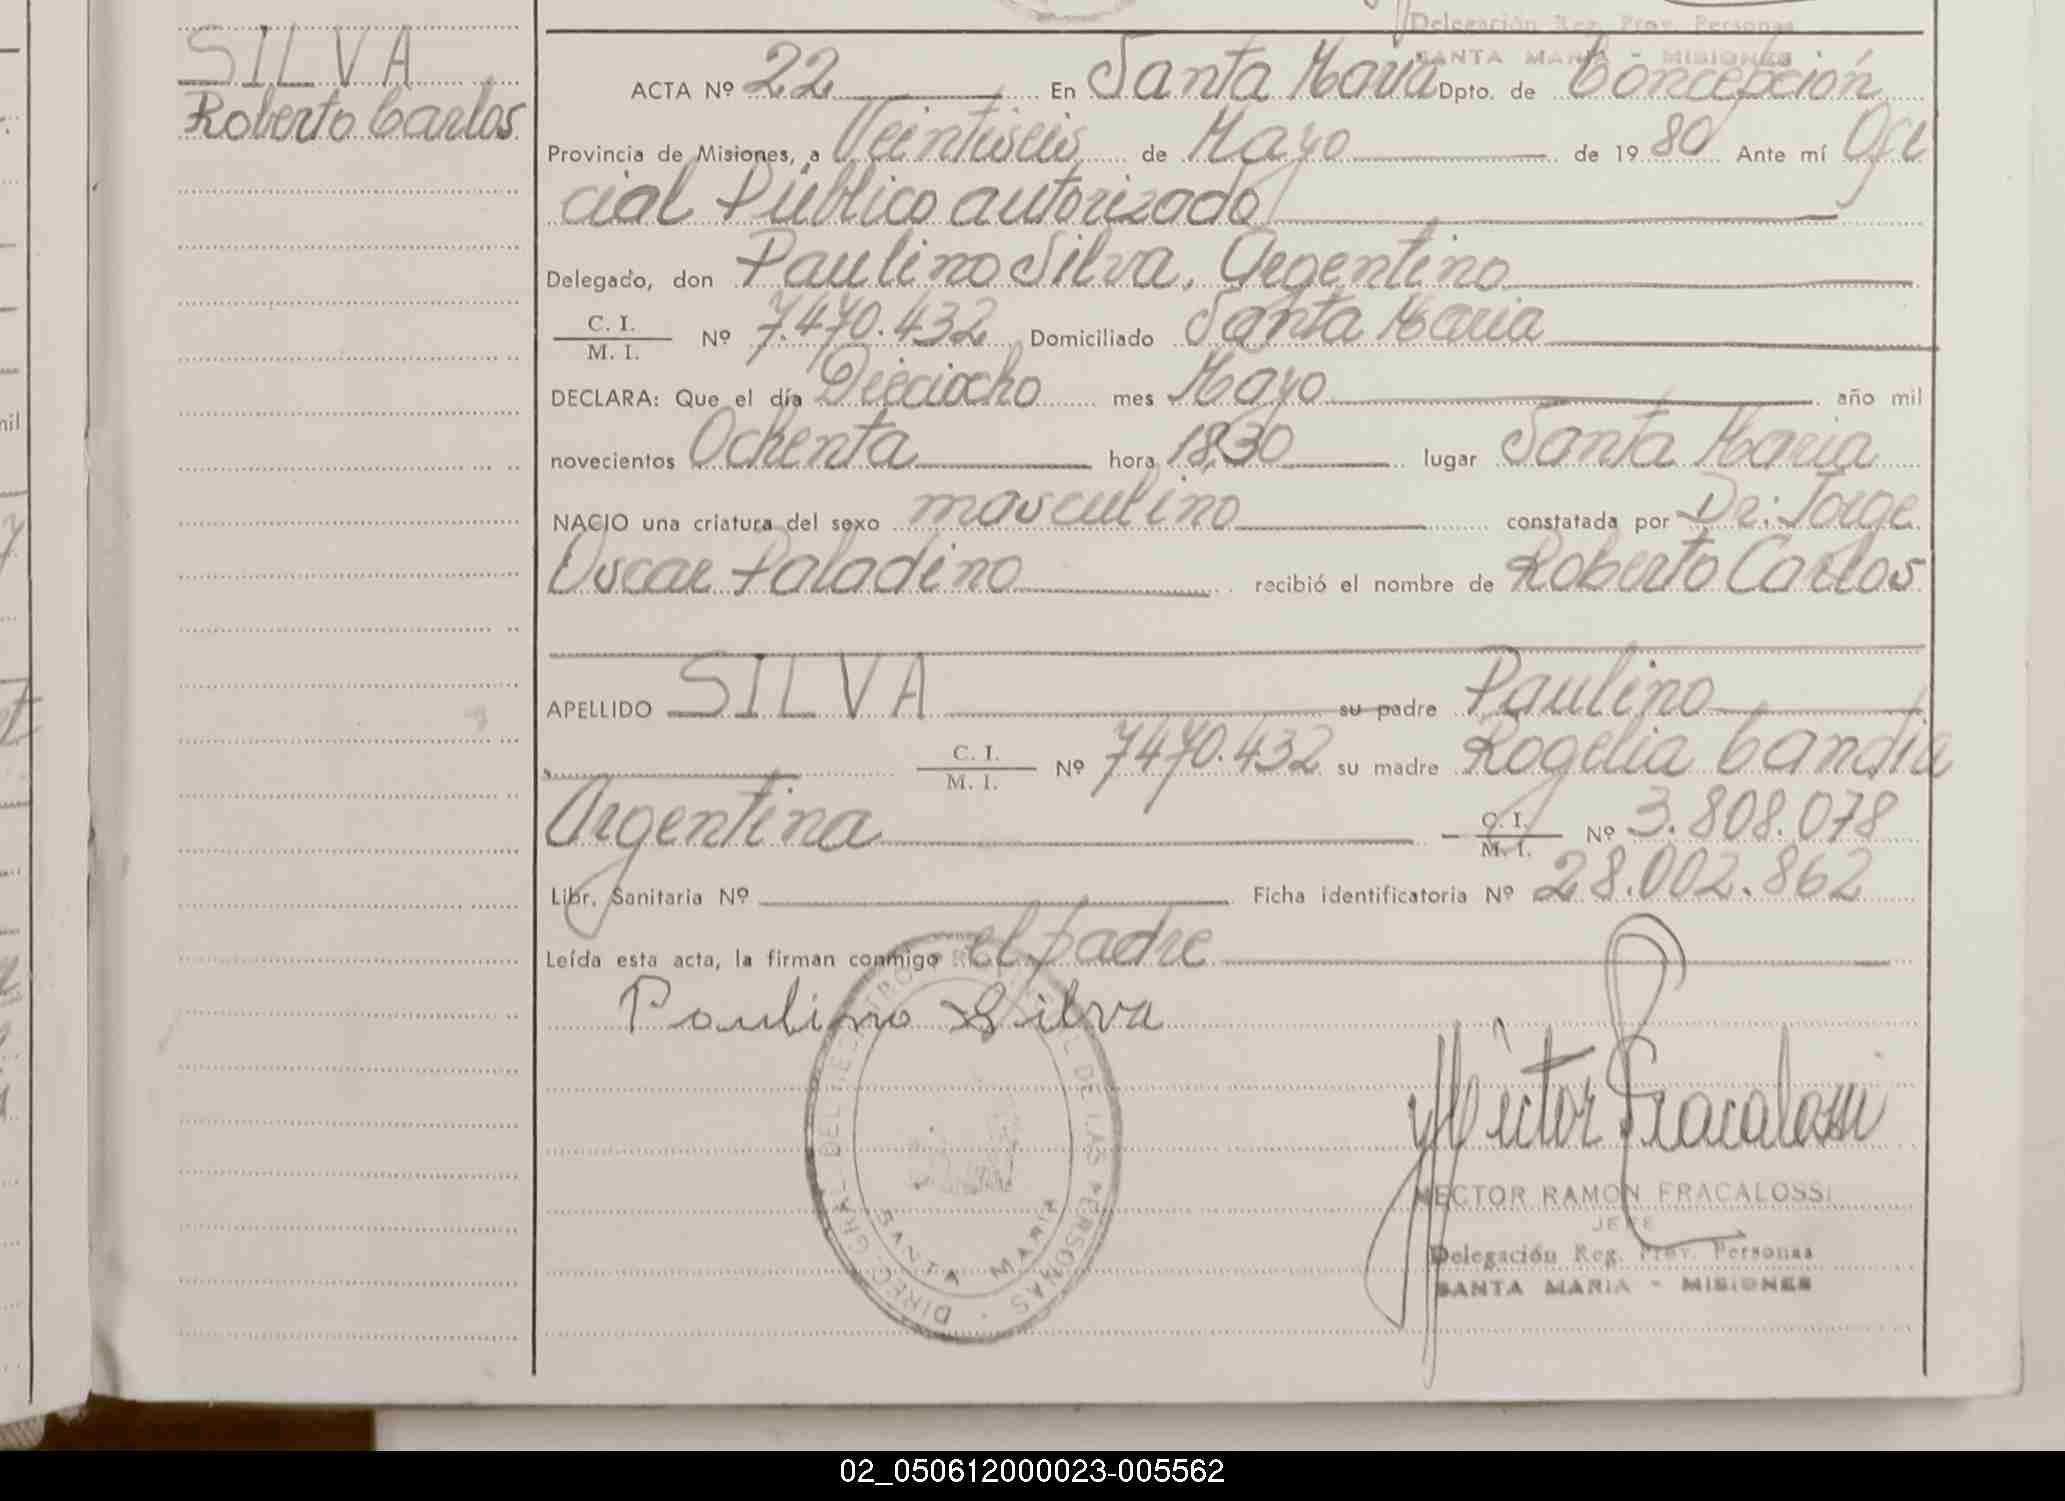 Delegación Reg. Prov. Personas
SANTA MARIA - MISIONES
SILVA
Roberto Carlos
ACTA Nº 22 En Santa María Dpto. de Concepción
Provincia de Misiones, a Veintiseis de Mayo de 1980 Ante mí Ofi
cial Público autorizado
Delegado, don Paulino Silva, Argentino
C. I.
M. I. Nº 7.470.432 Domiciliado Santa Maria
DECLARA: Que el día Dieciocho mes Mayo año mil
novecientos Ochenta hora 18,30 lugar Santa Maria
NACIO una criatura del sexo masculino constatada por Dr: Jorge
Oscar Paladino recibió el nombre de Roberto Carlos
APELLIDO SILVA su padre Paulino
C. I.
M. I. Nº 7470.432 su madre Rogelia Candia
Argentina C. I.
M. I. Nº 3.808.078
Libr. Sanitaria Nº Ficha identificatoria Nº 28.002.862
Leída esta acta, la firman conmigo el padre
Paulino Silva
Héctor R Fracalossi
HECTOR RAMON FRACALOSSI
JEFE
Delegación Reg. Prov. Personas
SANTA MARIA - MISIONES
DIREC. GRAL. DEL REG. PROVINCIAL DE LAS PERSONAS
SANTA MARIA
02_050612000023-005562